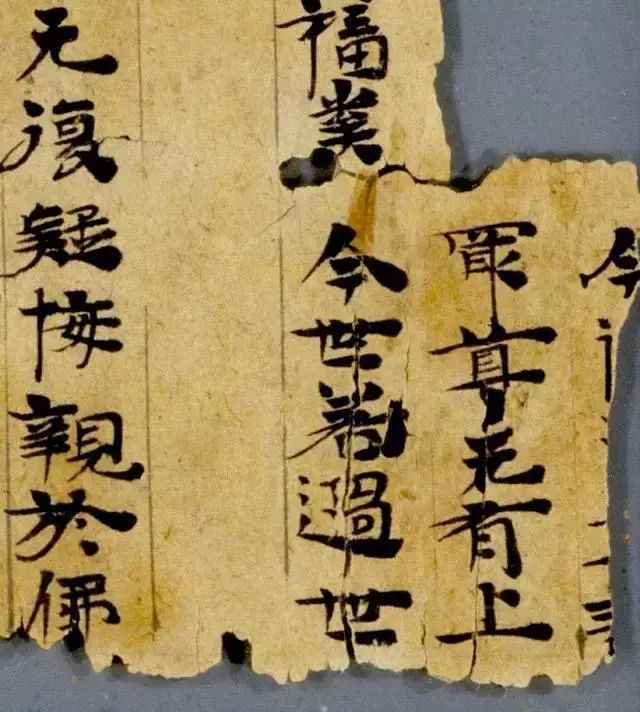 今
最尊无有上
福業今世若過世
无復疑悔親於佛